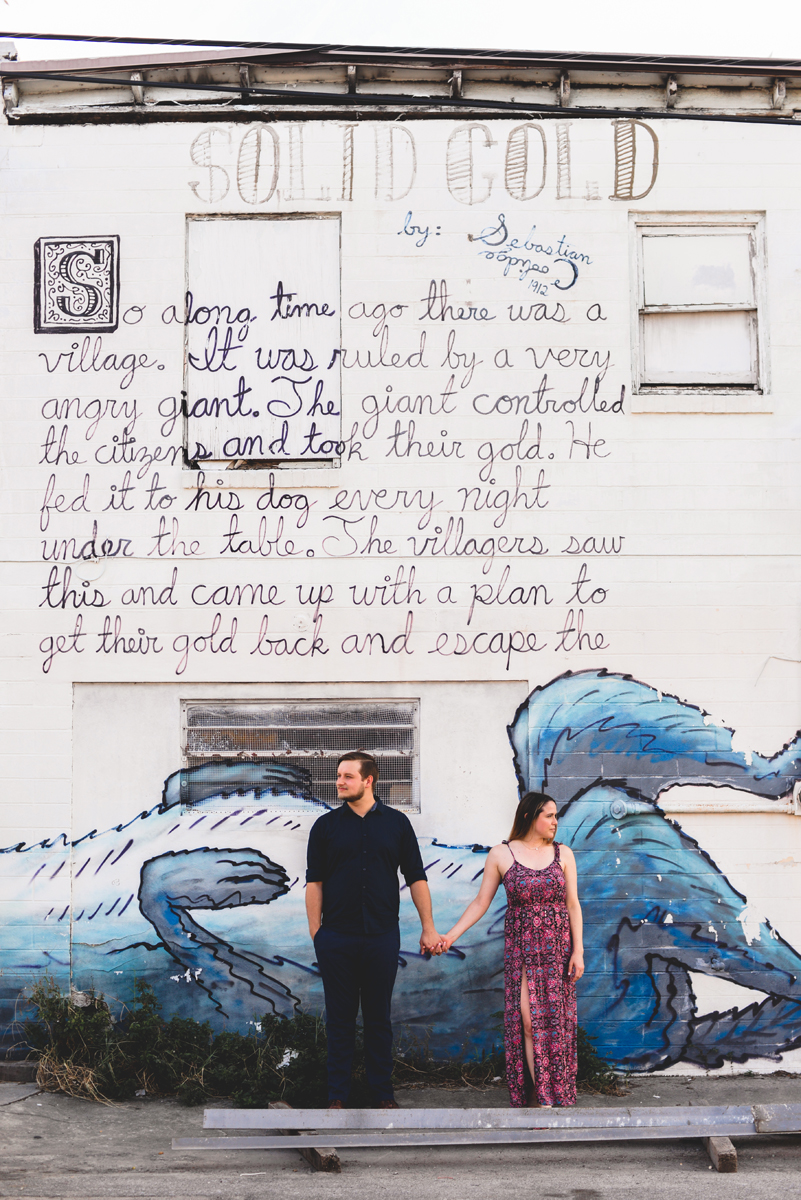 SOLID GOLD
by: Sebastian
1912
So along time ago there was a
village. It was ruled by a very
angry giant. The giant controlled
the citizens and took their gold. He
fed it to his dog every night
under the table. The villagers saw
this and came up with a plan to
get their gold back and escape the